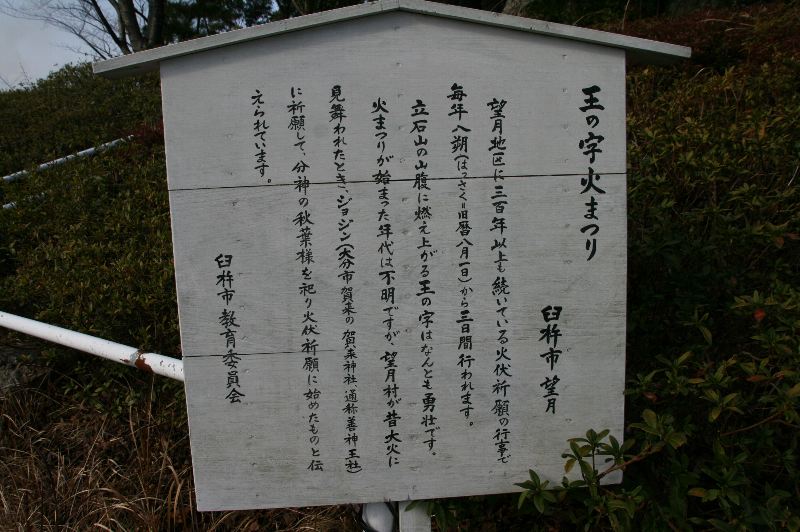 王の字火まつり
臼杵市 望月
望月地区に三百年以上も続いている火伏祈願の行事で
毎年八朔(はっさく=旧暦八月一日)から三日間行われます。
立石山の山腹に燃え上がる王の字はなんとも勇壮です。
火まつりが始まった年代は不明ですが、望月村が昔大火に
見舞われたとき、ジョジン(大分市賀来の賀来神社 通称善神王社)
に祈願して、分神の秋葉様を祀り火伏祈願に始めたものと伝
えられています。
臼杵市教育委員会